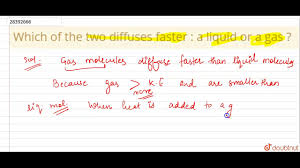 28392666
Which of the two diffuses faster : a liquid or a gas ?
Sol: Gas molecules diffuse faster than liquid molecules
Because gas > K.E and are smaller than
more
liq mol. When heat is added to a g
doubtnut